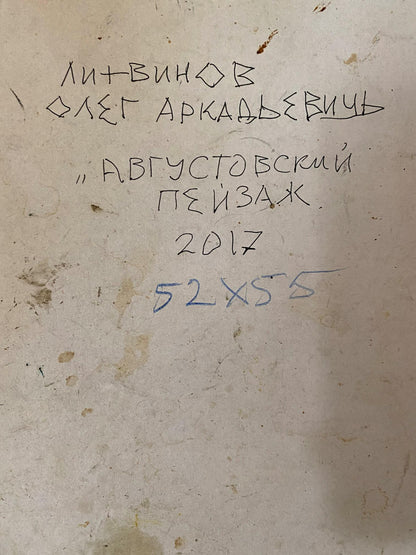 ЛИТВИНОВ
ОЛЕГ АРКАДЬЕВИЧЬ
„АВГУСТОВСКИЙ
ПЕЙЗАЖ
2017
52X55